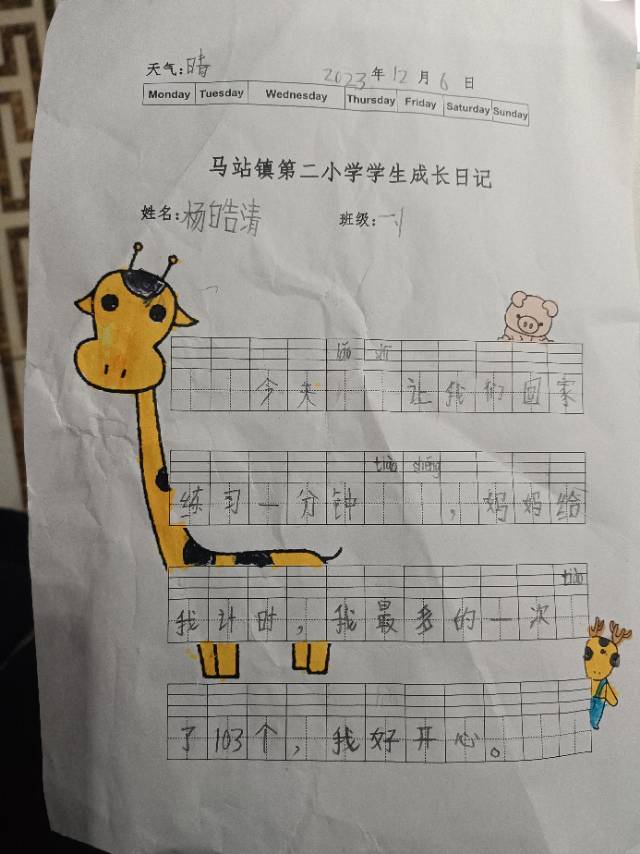 天气:晴 2023年12月6日
Monday Tuesday Wednesday Thursday Friday Saturday Sunday
马站镇第二小学学生成长日记
姓名:杨皓清 班级:一1
lǎo shī
今天 让我们回家
tiào shéng
练习一分钟 ,妈妈给
tiào
我计时,我最多的一次
了103个,我好开心。